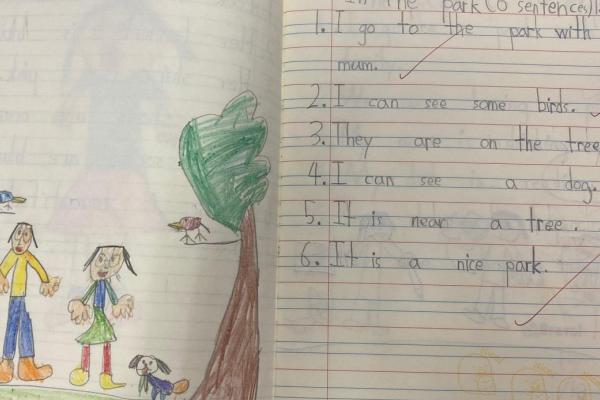 In the park (6 sentences)
1. I go to the park with
mum.
2. I can see some birds.
3. They are on the tree
4. I can see a dog.
5. It is near a tree.
6. It is a nice park.